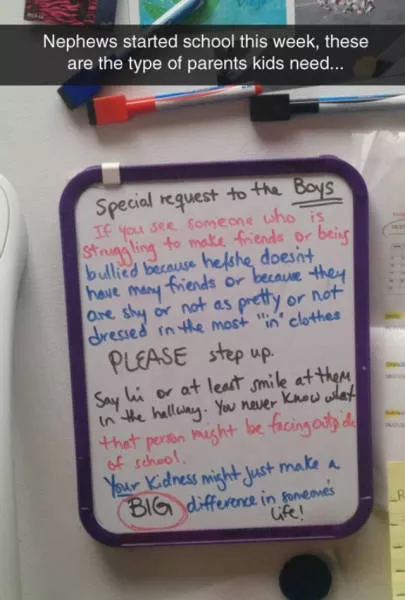 Nephews started school this week, these
are the type of parents kids need...
Special request to the Boys
If you see someone who is
struggling to make friends or being
bullied because he/she doesn't
have many friends or because they
are shy or not as pretty or not
dressed in the most "in" clothes
PLEASE step up.
Say hi or at least smile at them
in the hallway. You never know what
that person might be facing outside
of school.
Your Kidness might just make a
BIG difference in someone's
life!